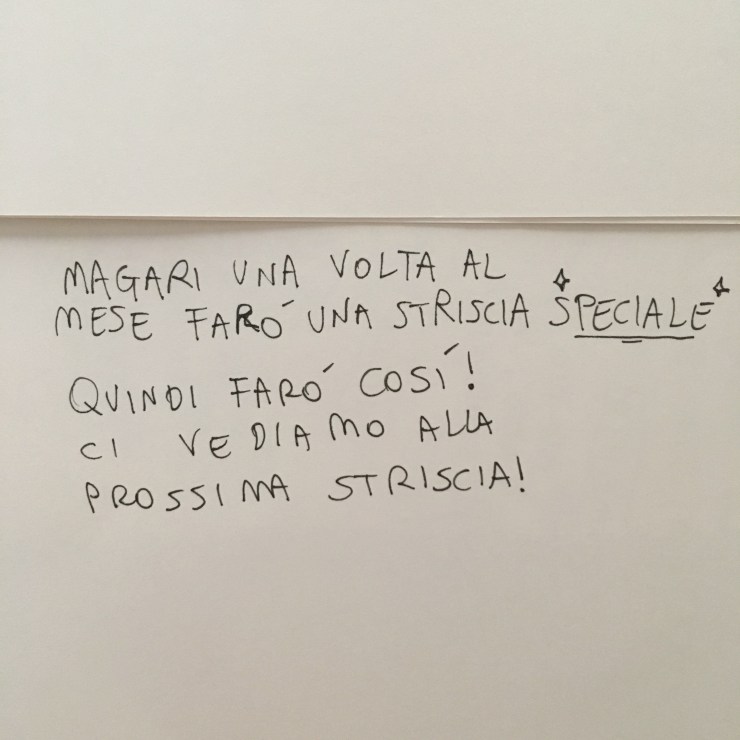 MAGARI UNA VOLTA AL
MESE FARÓ UNA STRISCIA SPECIALE
QUINDI FARÓ COSÍ!
CI VEDIAMO ALLA
PROSSIMA STRISCIA!